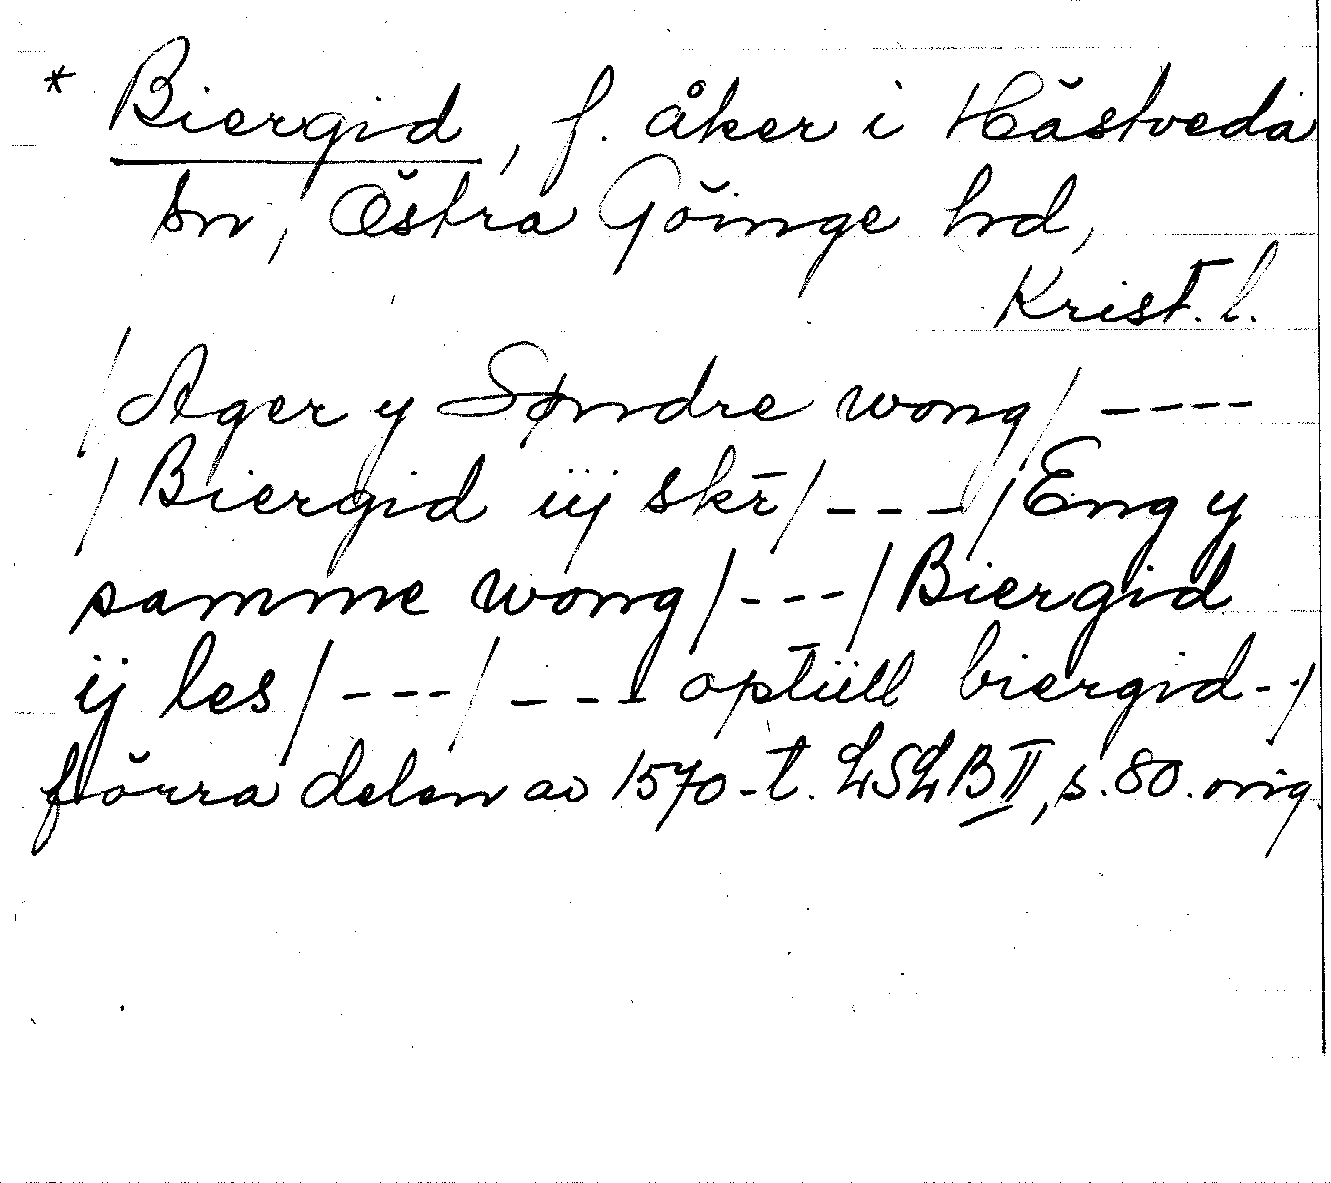 * Biergid, f. åker i Hästveda
sn, Östra Göinge hd,
Krist. l.
/Ager y Søndre wong/ ----
/Biergid iij skr̄/ --- /Eng y
samme wong/ --- /Biergid
ij les/ --- / --- optiill biergid --/
förra delen av 1570-t. LSLB II, s. 80. orig.